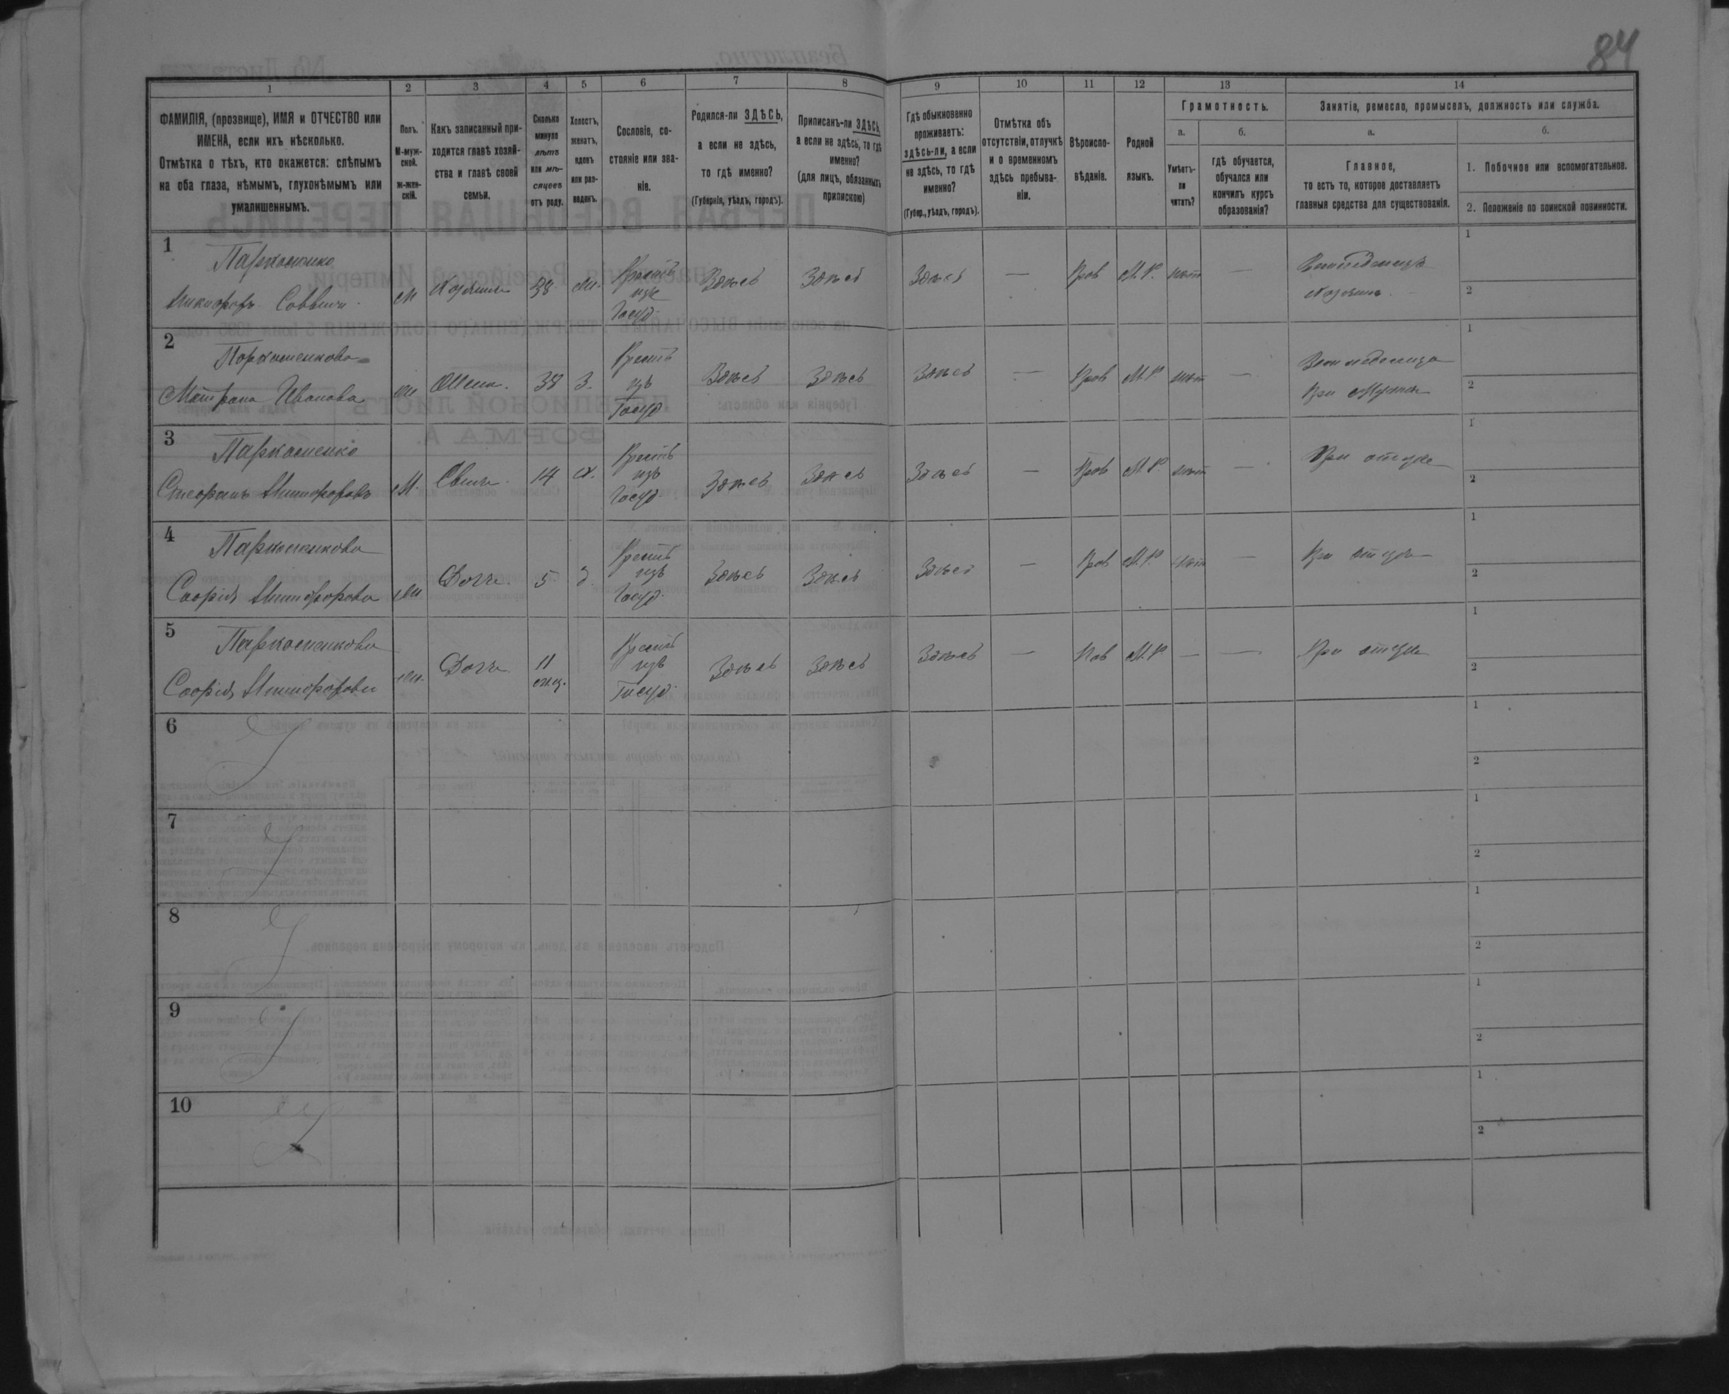 84
1
2
3
4
5
6
7
8
9
10
11
12
13
14
ФАМИЛІЯ, (прозвище), ИМЯ и ОТЧЕСТВО или
ИМЕНА, если ихъ нѣсколько.
Отмѣтка о тѣхъ, кто окажется: слѣпымъ
на оба глаза, нѣмымъ, глухонѣмымъ или
умалишеннымъ.
Полъ.
М-муж-
ской.
Ж-жен-
скій.
Какъ записанный при-
ходится главѣ хозяй-
ства и главѣ своей
семьи.
Сколько
минуло
лѣтъ
или мѣ-
сяцевъ
отъ роду.
Холостъ,
женатъ,
вдовъ
или раз-
веденъ.
Сословіе, со-
стояніе или зва-
ніе.
Родился-ли ЗДѢСЬ,
а если не здѣсь,
то гдѣ именно?
(Губернія, уѣздъ, городъ).
Приписанъ-ли ЗДѢСЬ,
а если не здѣсь, то гдѣ
именно?
(для лицъ, обязанныхъ
припискою)
Гдѣ обыкновенно
проживаетъ:
здѣсь-ли, а если
не здѣсь, то гдѣ
именно?
(Губер., уѣздъ, городъ).
Отмѣтка объ
отсутствіи, отлучкѣ
и о временномъ
здѣсь пребыва-
ніи.
Вѣроиспо-
вѣданіе.
Родной
языкъ.
Грамотность.
а.
Умѣетъ-
ли
читать?
б.
гдѣ обучается,
обучался или
кончилъ курсъ
образованія?
Занятіе, ремесло, промыселъ, должность или служба.
а.
Главное,
то есть то, которое доставляетъ
главныя средства для существованія.
б.
1. Побочное или вспомогательное.
2. Положеніе по воинской повинности.
1
Пархоменко
Никифоръ Саввичъ
М
Хозяинъ
38
Крест
изъ
Госуд.
Здѣсь
Здѣсь
Здѣсь
—
Прав
М.Р.
нѣтъ
—
Земледѣлецъ
Хозяинъ
1
2
2
Пархоменкова
Матрона Иванова
ж
Жена.
38
З.
Крест
изъ
Госуд
Здѣсь
Здѣсь
Здѣсь
—
Прав
М.Р
нѣт
—
При мужѣ
1
2
3
Пархоменко
Стефанъ Никифоровъ
М.
Сынъ.
14
х.
Крест
изъ
Госуд
Здѣсь
Здѣсь
Здѣсь
—
Прав
М.Р
нѣт
—
При отцѣ
1
2
4
Пархоменкова
Софія Никифорова
ж
Дочь.
5
д
Крест
изъ
Госуд.
Здѣсь
Здѣсь
Здѣсь
—
Прав
М.Р
нѣт
—
При отцѣ
1
2
5
Пархоменкова
Софія Никифорова
ж.
Дочь
11
мѣц.
Крест
изъ
Госуд.
Здѣсь
Здѣсь
Здѣсь
—
Пав
М.Р
—
—
При отцѣ
1
2
6
1
2
7
1
2
8
1
2
9
1
2
10
1
2